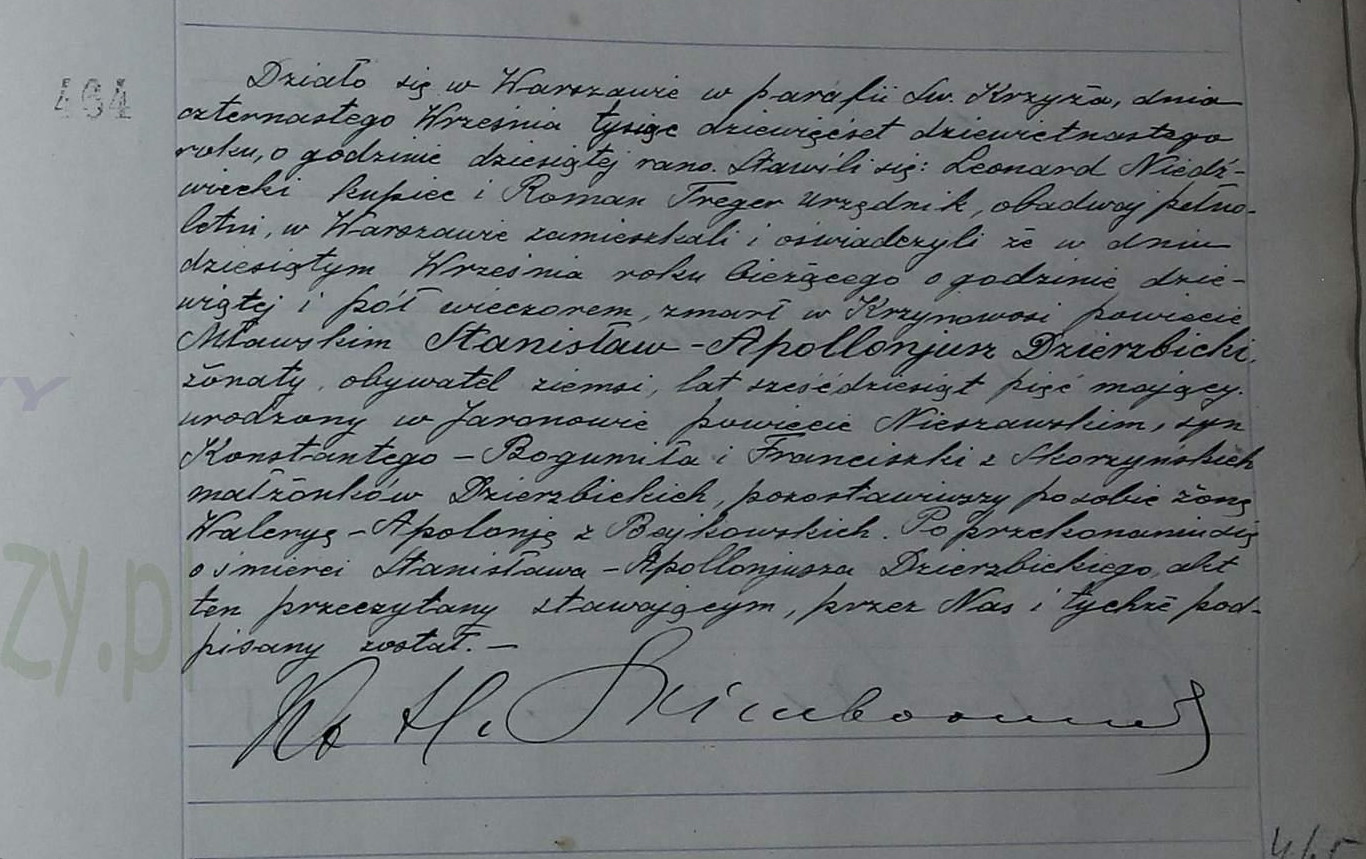 464
Działo się w Warszawie w parafii Św. Krzyża, dnia
czternastego Września tysiąc dziewięćset dziewietnastego
roku, o godzinie dziesiątej rano. Stawili się: Leonard Niedź-
wiecki kupiec i Roman Treger urzędnik, obadwaj pełno-
letni, w Warszawie zamieszkali i oświadczyli że w dniu
dziesiątym Września roku bieżącego o godzinie dzie-
wiątej i pół wieczorem, zmarł w Krzynowosi powiecie
Mławskim Stanisław-Apollonjusz Dzierzbicki,
żonaty, obywatel ziemsi, lat sześćdziesiąt pięć mający.
urodzony w Jaranowie powiecie Nieszawskim, syn
Konstantego - Bogumiła i Franciszki z Skorzyńskich
małżonków Dzierzbickich, pozostawiwszy po sobie żonę
Waleryę - Apolonję z Bojkowskich. Po przekonaniu się
o śmierci Stanisława - Apollonjusza Dzierzbickiego, akt
ten przeczytany stawającym, przez Nas i tychże pod-
pisany został. -
Ks H.
Y
zy.pl